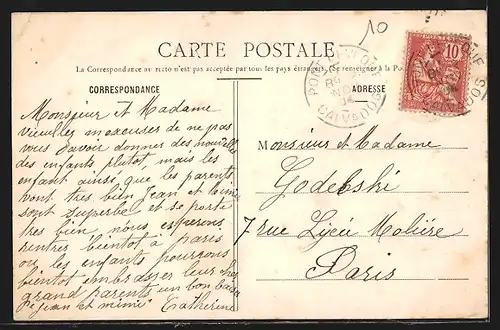 10
CARTE POSTALE
La Correspondance au recto n'est pas acceptée par tous les pays étrangers. (Se renseigner à la Poste
CORRESPONDANCE
ADRESSE
10
CALVADOS
Monsieur et Madame
Vieulles m excuser de ne pas
vous davoir donner des nouvelles
des enfants plutot mais les
enfant ainsé que les parents
vont tres bien Jean et
sont superbe et se porte
tres bien nous esperons
rentres bientôt à paris
ou les enfants pourrons
bientot embrasser leur chers
grand parents un bon baiser
de jean et mimi Catherine
Monsieur et Madame
Godebski
7 rue Lycée Molière
Paris